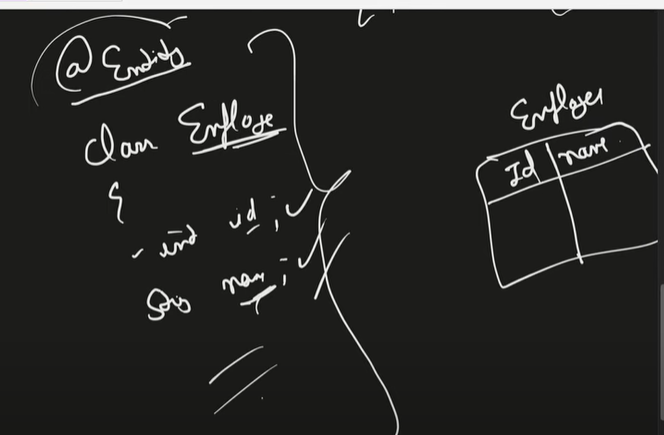 @Entity
class Employee
{
- int id;
name;
Employee
Id | name